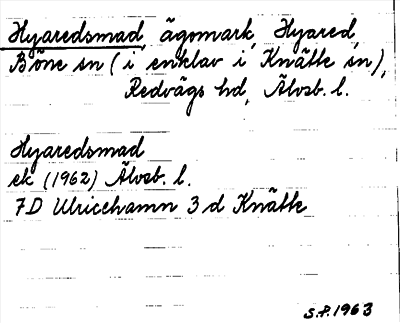 Hyaredsmad, ägomark, Hyared,
Böne sn (i enklav i Knätte sn),
Redvägs hd, Älvsb. l.
Hyaredsmad
ek (1962) Älvsb. l.
7D Ulricehamn 3 d Knätte
S.F. 1963